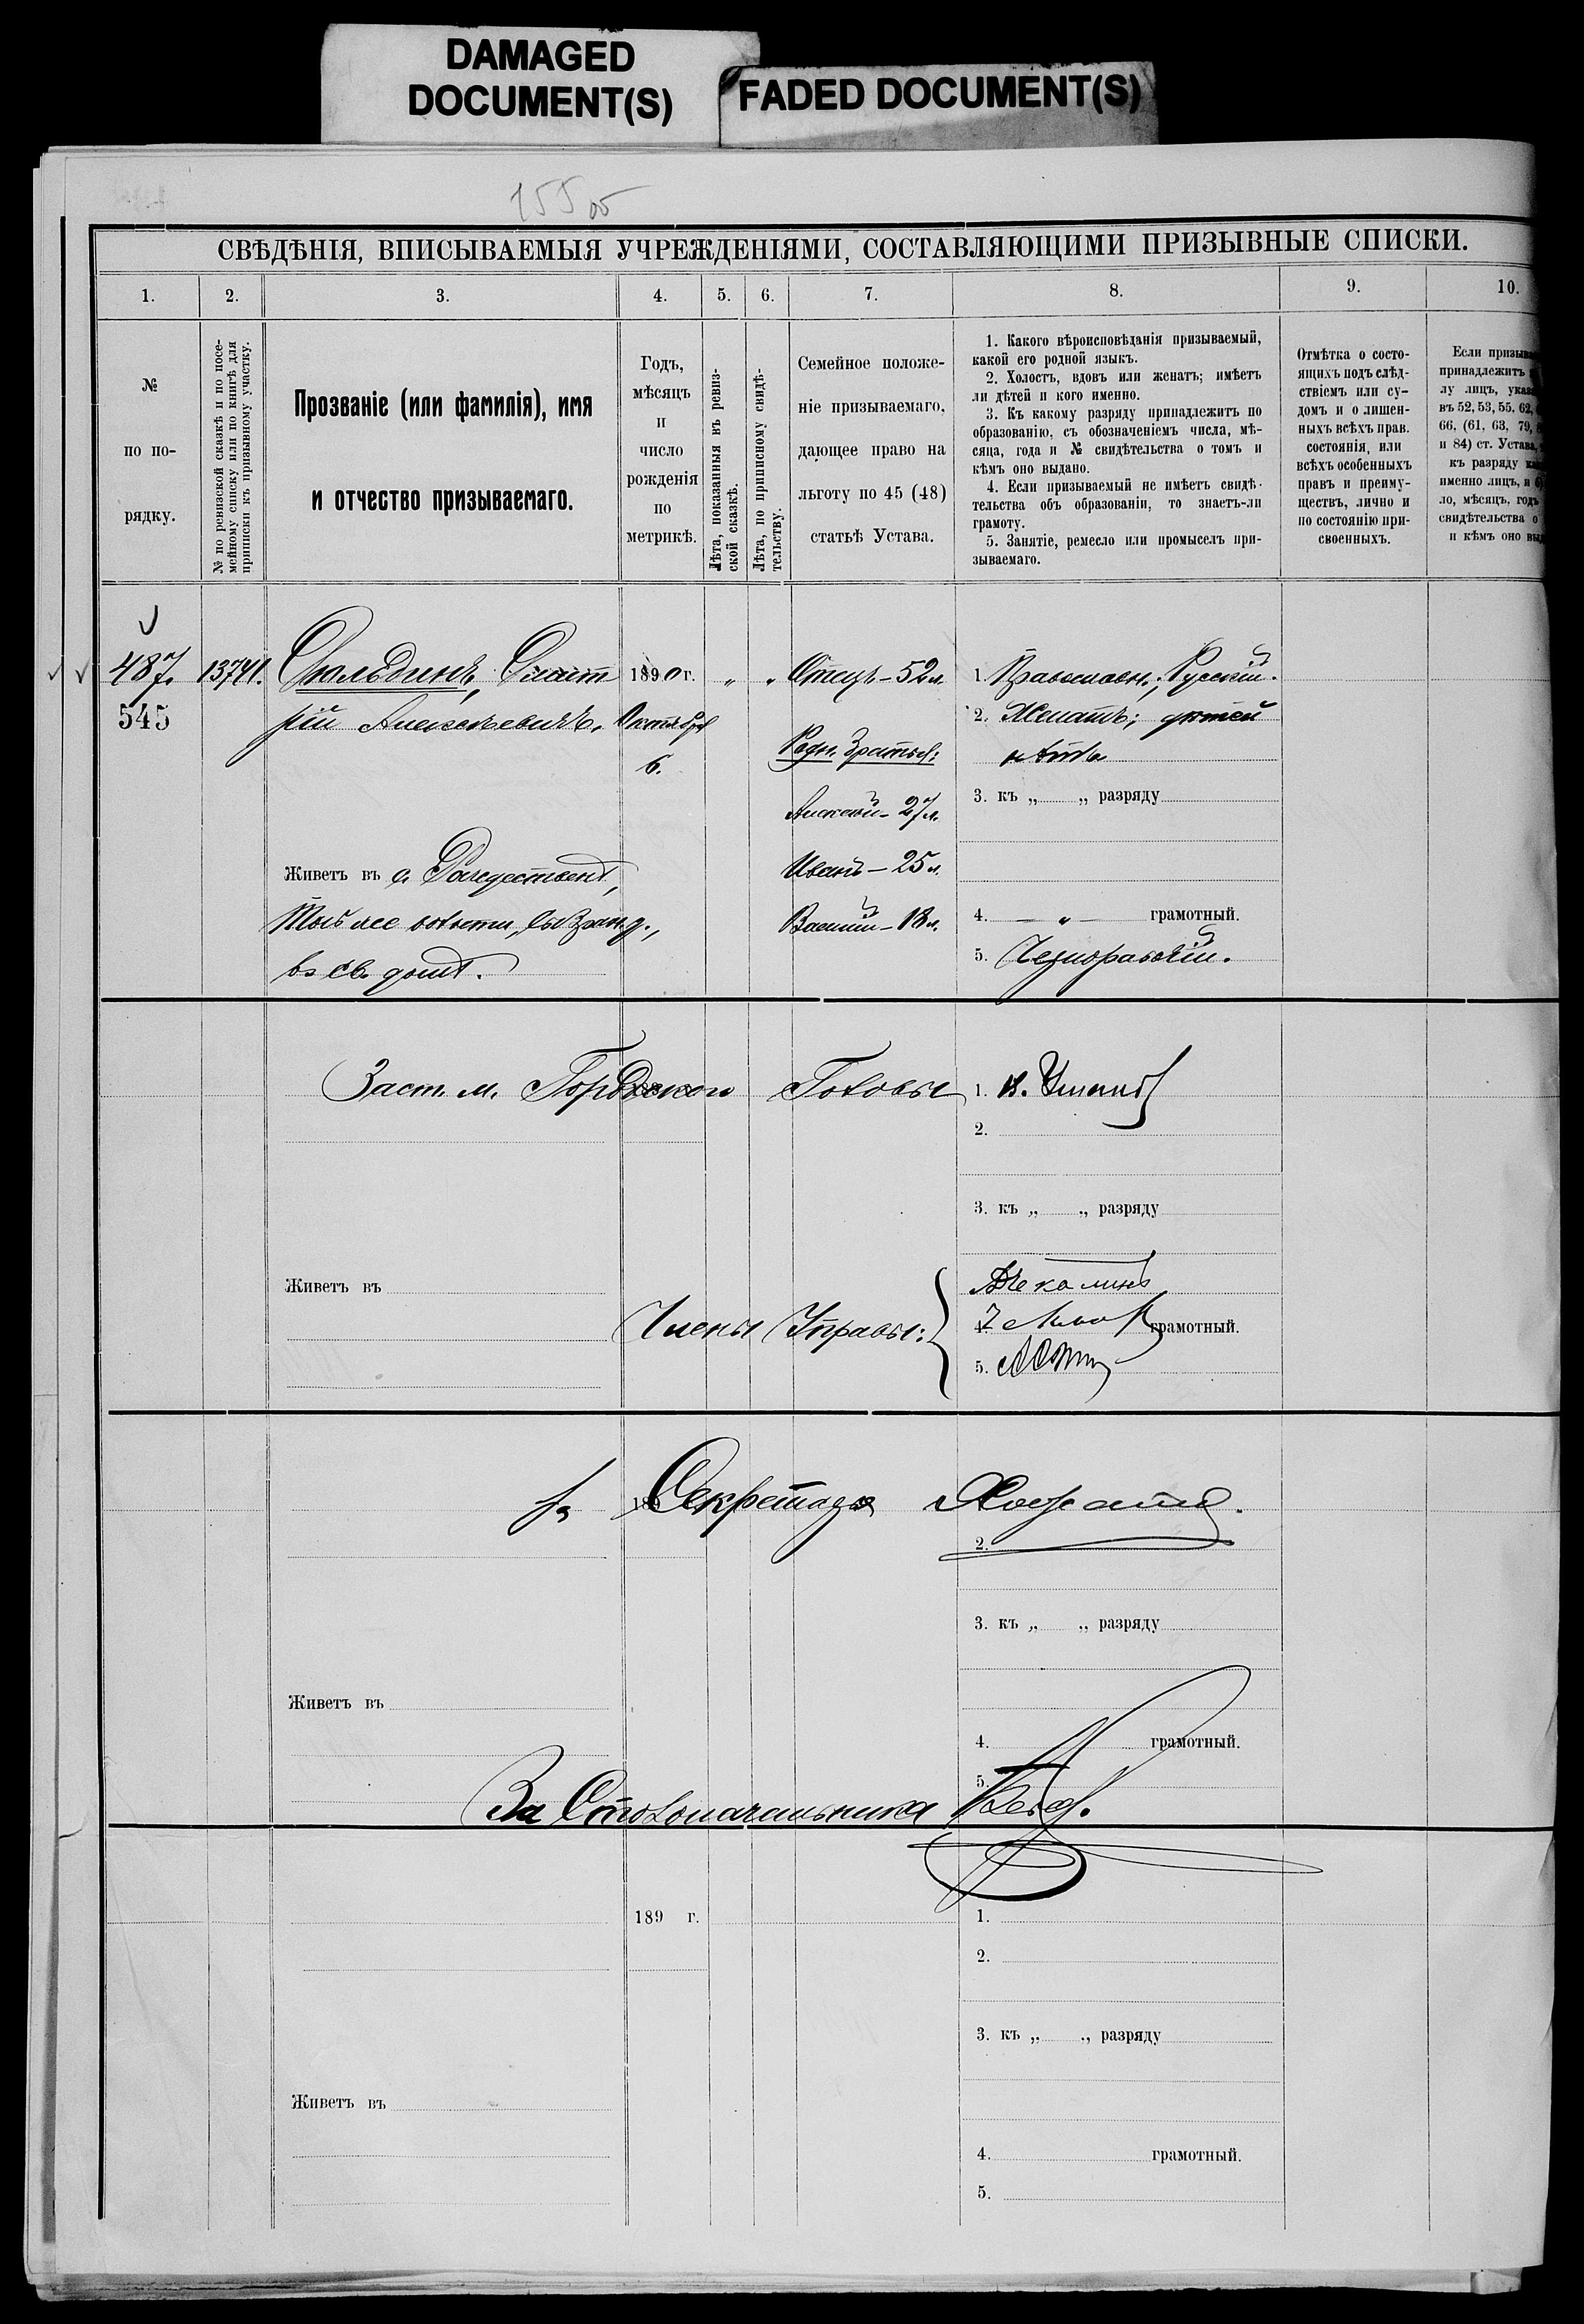 DAMAGED
DOCUMENT(S)
FADED DOCUMENT(S)
155
СВѢДѢНІЯ, ВПИСЫВАЕМЫЯ УЧРЕЖДЕНІЯМИ, СОСТАВЛЯЮЩИМИ ПРИЗЫВНЫЕ СПИСКИ.
1. 2. 3. 4. 5. 6. 7. 8. 9. 10.
№
по по-
рядку.
№ по ревизской сказкѣ и по посе-
мейному списку или по книгѣ для
приписки къ призывному участку.
Прозваніе (или фамилія), имя
и отчество призываемаго.
Годъ,
мѣсяцъ
и
число
рожденія
по
метрикѣ.
Лѣта, показанныя въ ревиз-
ской сказкѣ.
Лѣта, по приписному свидѣ-
тельству.
Семейное положе-
ніе призываемаго,
дающее право на
льготу по 45 (48)
статьѣ Устава.
1. Какого вѣроисповѣданія призываемый,
какой его родной языкъ.
2. Холостъ, вдовъ или женатъ; имѣетъ
ли дѣтей и кого именно.
3. Къ какому разряду принадлежитъ по
образованію, съ обозначеніемъ числа, мѣ-
сяца, года и № свидѣтельства о томъ и
кѣмъ оно выдано.
4. Если призываемый не имѣетъ свидѣ-
тельства объ образованіи, то знаетъ-ли
грамоту.
5. Занятіе, ремесло или промыселъ при-
зываемаго.
Отмѣтка о состо-
ящихъ подъ слѣд-
ствіемъ или су-
домъ и о лишен-
ныхъ всѣхъ прав.
состоянія, или
всѣхъ особенныхъ
правъ и преиму-
ществъ, лично и
по состоянію при-
своенныхъ.
Если
принадлежитъ
лу лицъ,
въ 52, 53, 55, 62,
66, (61, 63, 79,
и 84) ст. Устава,
къ разряду
именно лицъ, и
ло, мѣсяцъ, годъ
свидѣтельства о
и кѣмъ оно
487. 13741. 1890 г. „ „ Отецъ – 52 л. 1. Православн.; Русскій.
545 Алексѣевичъ. Октября 2. Женатъ; дѣтей
6. Родн. братья: нѣтъ
Алексѣй – 27 л. 3. къ „ „ разряду
Живетъ въ с. Рождествен, Иванъ – 25 л.
Той же волости, Василій – 18 л. 4. — „ — грамотный.
въ св. домѣ. 5. Чернорабочій.
Заст. м. Городского Головы 1.
2.
3. къ „ „ разряду
Живетъ въ
Члены Управы: 4. грамотный.
5.
189 Секретарь
2.
3. къ „ „ разряду
Живетъ въ
4. грамотный.
5.
За Столоначальника
189 г. 1.
2.
3. къ „ „ разряду
Живетъ въ
4. грамотный.
5.